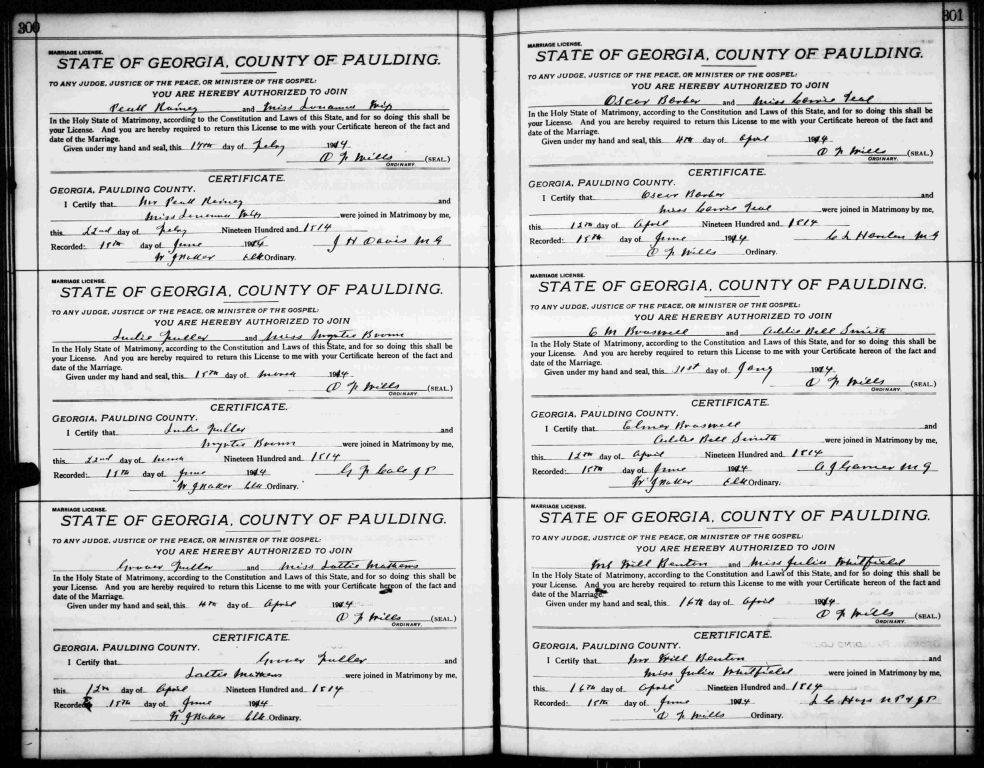 300
MARRIAGE LICENSE.
STATE OF GEORGIA, COUNTY OF PAULDING.
TO ANY JUDGE, JUSTICE OF THE PEACE, OR MINISTER OF THE GOSPEL:
YOU ARE HEREBY AUTHORIZED TO JOIN
and Miss
In the Holy State of Matrimony, according to the Constitution and Laws of this State, and for so doing this shall be
your License. And you are hereby required to return this License to me with your Certificate hereon of the fact and
date of the Marriage.
Given under my hand and seal, this 17th day of Feby 1914
O F Wills (SEAL.)
ORDINARY.
CERTIFICATE.
GEORGIA, PAULDING COUNTY.
I Certify that Mr and
Miss were joined in Matrimony by me,
this 22nd day of Feby Nineteen Hundred and 1914
Recorded: 15th day of June 1914 J H Davis M G
W J Baker Clk Ordinary.
MARRIAGE LICENSE.
STATE OF GEORGIA, COUNTY OF PAULDING.
TO ANY JUDGE, JUSTICE OF THE PEACE, OR MINISTER OF THE GOSPEL:
YOU ARE HEREBY AUTHORIZED TO JOIN
Fuller and Miss Myrtie
In the Holy State of Matrimony, according to the Constitution and Laws of this State, and for so doing this shall be
your License. And you are hereby required to return this License to me with your Certificate hereon of the fact and
date of the Marriage.
Given under my hand and seal, this 18th day of March 1914
O F Wills (SEAL.)
ORDINARY.
CERTIFICATE.
GEORGIA, PAULDING COUNTY.
I Certify that Fuller and
Myrtie were joined in Matrimony by me,
this 22nd day of March Nineteen Hundred and 1914
Recorded: 15th day of June 1914 G F Cole J P
W J Baker Clk Ordinary.
MARRIAGE LICENSE.
STATE OF GEORGIA, COUNTY OF PAULDING.
TO ANY JUDGE, JUSTICE OF THE PEACE, OR MINISTER OF THE GOSPEL:
YOU ARE HEREBY AUTHORIZED TO JOIN
Grover Fuller and Miss Lottie Mathews
In the Holy State of Matrimony, according to the Constitution and Laws of this State, and for so doing this shall be
your License. And you are hereby required to return this License to me with your Certificate hereon of the fact and
date of the Marriage.
Given under my hand and seal, this 4th day of April 1914
O F Wills (SEAL.)
ORDINARY.
CERTIFICATE.
GEORGIA, PAULDING COUNTY.
I Certify that Grover Fuller and
Lottie Mathews were joined in Matrimony by me,
this 12th day of April Nineteen Hundred and 1914
Recorded 15th day of June 1914
W J Baker Clk Ordinary.
301
MARRIAGE LICENSE.
STATE OF GEORGIA, COUNTY OF PAULDING.
TO ANY JUDGE, JUSTICE OF THE PEACE, OR MINISTER OF THE GOSPEL:
YOU ARE HEREBY AUTHORIZED TO JOIN
Oscar Barber and Miss Carrie Teal
In the Holy State of Matrimony, according to the Constitution and Laws of this State, and for so doing this shall be
your License. And you are hereby required to return this License to me with your Certificate hereon of the fact and
date of the Marriage.
Given under my hand and seal, this 4th day of April 1914
O F Wills (SEAL.)
ORDINARY.
CERTIFICATE.
GEORGIA, PAULDING COUNTY.
I Certify that Oscar Barber and
Miss Carrie Teal were joined in Matrimony by me,
this 12th day of April Nineteen Hundred and 1914
Recorded: 15th day of June 1914 M G
O F Wills Ordinary.
MARRIAGE LICENSE.
STATE OF GEORGIA, COUNTY OF PAULDING.
TO ANY JUDGE, JUSTICE OF THE PEACE, OR MINISTER OF THE GOSPEL:
YOU ARE HEREBY AUTHORIZED TO JOIN
E M Braswell and Addie Bell Smith
In the Holy State of Matrimony, according to the Constitution and Laws of this State, and for so doing this shall be
your License. And you are hereby required to return this License to me with your Certificate hereon of the fact and
date of the Marriage.
Given under my hand and seal, this 31st day of Jany 1914
O F Wills (SEAL.)
ORDINARY.
CERTIFICATE.
GEORGIA, PAULDING COUNTY.
I Certify that Elmer Braswell and
Addie Bell Smith were joined in Matrimony by me,
this 12th day of April Nineteen Hundred and 1914
Recorded: 15th day of June 1914 A J Garner M G
W J Baker Clk Ordinary.
MARRIAGE LICENSE.
STATE OF GEORGIA, COUNTY OF PAULDING.
TO ANY JUDGE, JUSTICE OF THE PEACE, OR MINISTER OF THE GOSPEL:
YOU ARE HEREBY AUTHORIZED TO JOIN
Mr Will Benton and Miss Julia Whitfield
In the Holy State of Matrimony, according to the Constitution and Laws of this State, and for so doing this shall be
your License. And you are hereby required to return this License to me with your Certificate hereon of the fact and
date of the Marriage.
Given under my hand and seal, this 16th day of April 1914
O F Wills (SEAL.)
ORDINARY.
CERTIFICATE.
GEORGIA, PAULDING COUNTY.
I Certify that Mr Will Benton and
Miss Julia Whitfield were joined in Matrimony by me,
this 16th day of April Nineteen Hundred and 1914
Recorded: 15th day of June 1914 L C Hays N P & J P
O F Wills Ordinary.